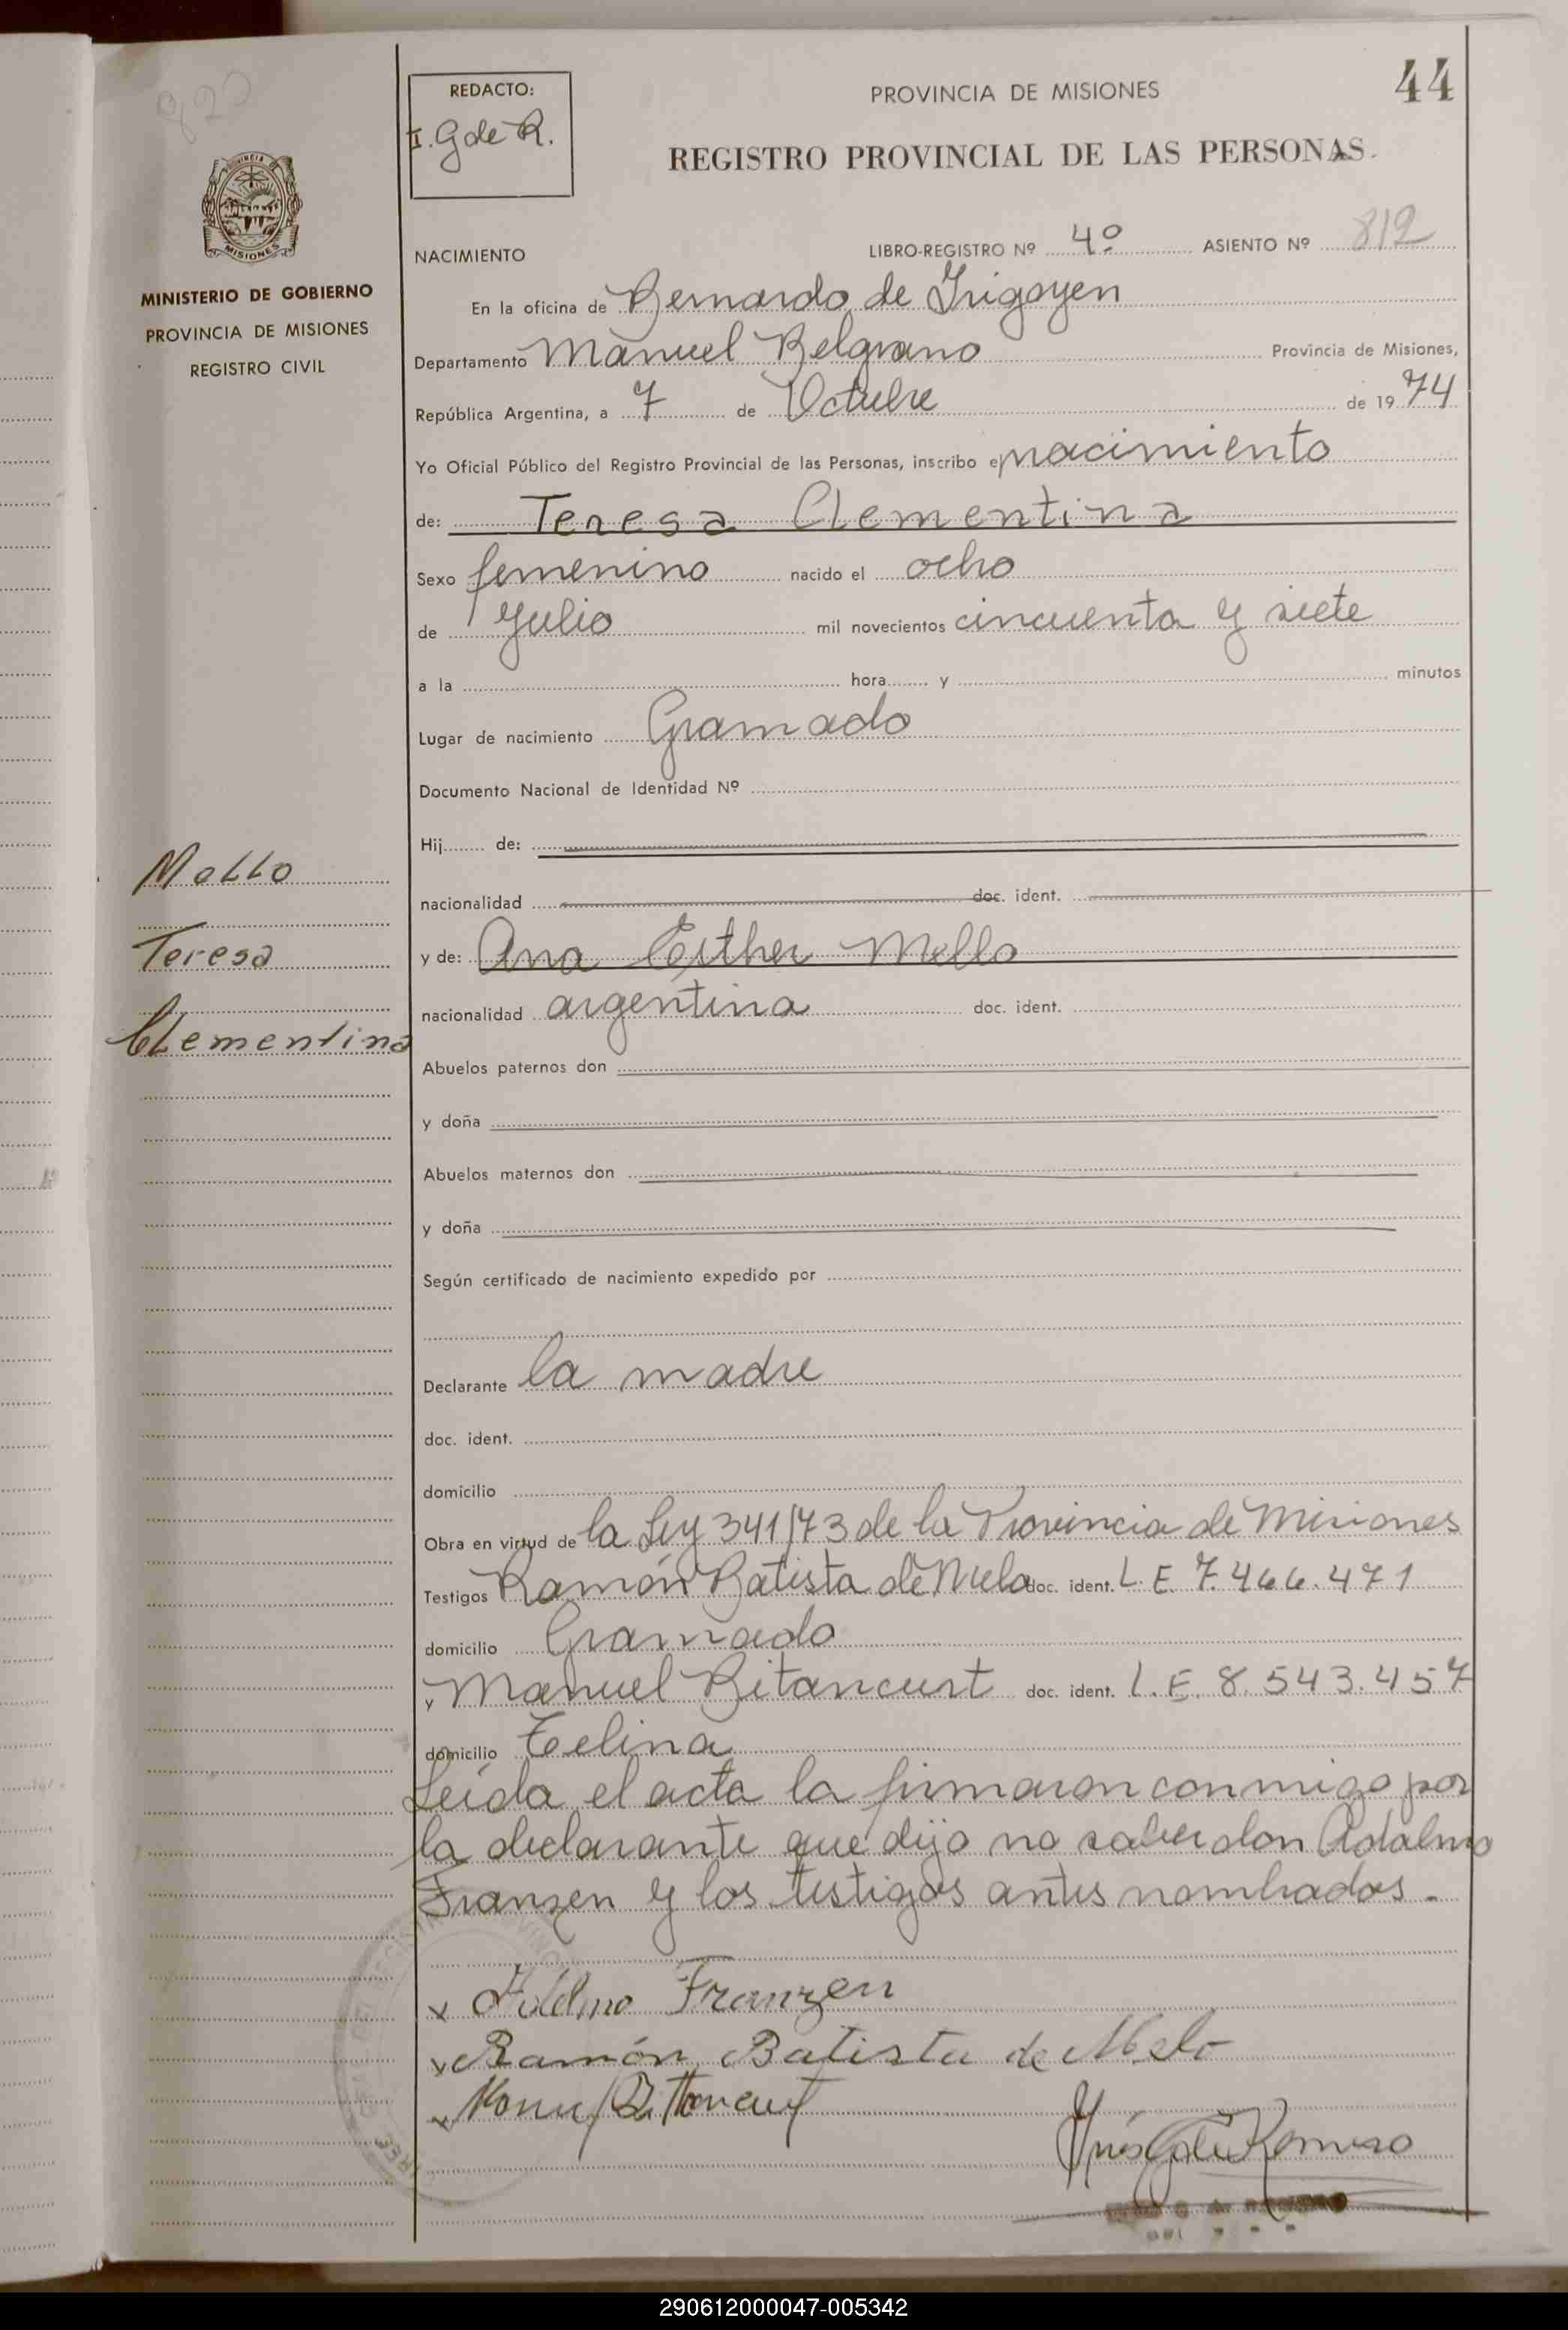 44
REDACTO:
I. G de R.
PROVINCIA DE MISIONES
REGISTRO PROVINCIAL DE LAS PERSONAS.
MISIONES
MINISTERIO DE GOBIERNO
PROVINCIA DE MISIONES
REGISTRO CIVIL
NACIMIENTO LIBRO-REGISTRO Nº 4º ASIENTO Nº 812
En la oficina de Bernardo de Irigoyen
Departamento Manuel Belgrano Provincia de Misiones,
República Argentina, a 7 de Octubre de 1974
Yo Oficial Público del Registro Provincial de las Personas, inscribo el nacimiento
de: Teresa Clementina
Sexo femenino nacido el ocho
de Julio mil novecientos cincuenta y siete
a la hora y minutos
Lugar de nacimiento Gramado
Documento Nacional de Identidad Nº
Hij de:
nacionalidad doc. ident.
y de: Ana Esther Mello
nacionalidad argentina doc. ident.
Abuelos paternos don
y doña
Abuelos maternos don
y doña
Según certificado de nacimiento expedido por
Declarante la madre
doc. ident.
domicilio
Obra en virtud de la Ley 341/73 de la Provincia de Misiones
Testigos Ramón Batista de Melo doc. ident. L.E. 7.466.471
domicilio Gramado
y Manuel Bitancurt doc. ident. L.E. 8.543.457
domicilio Celina
Leída el acta la firmaron conmigo por
la declarante que dijo no saber don Adalmo
Franzen y los testigos antes nombrados.
Mello
Teresa
Clementina
x Franzen
x Ramón Batista de Melo
x
Inés G de Romero
290612000047-005342